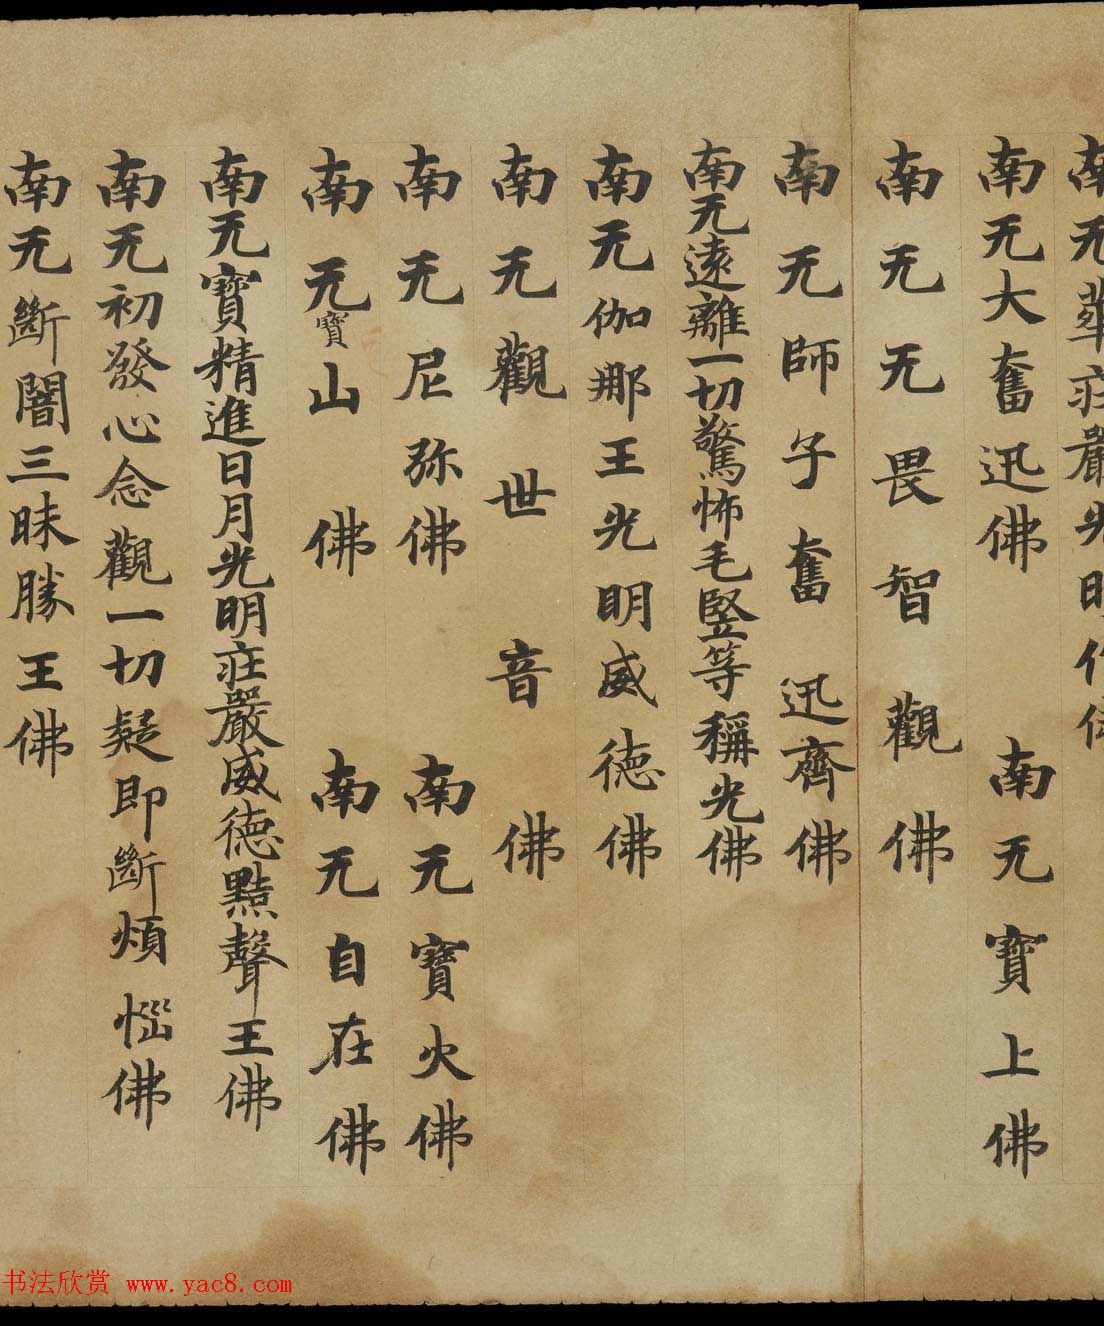 南无華莊嚴光明作佛
南无大奮迅佛 南无寶上佛
南无无畏智觀佛
南无師子奮迅齊佛
南无遠離一切驚怖毛竪等稱光佛
南无伽那王光明威德佛
南无觀世音佛
南无尼弥佛 南无寶火佛
南无寶山佛 南无自在佛
南无寶精進日月光明莊嚴威德㸃聲王佛
南无初發心念觀一切疑即斷煩惱佛
南无斷闇三昧勝王佛
书法欣赏 www.yac8.com